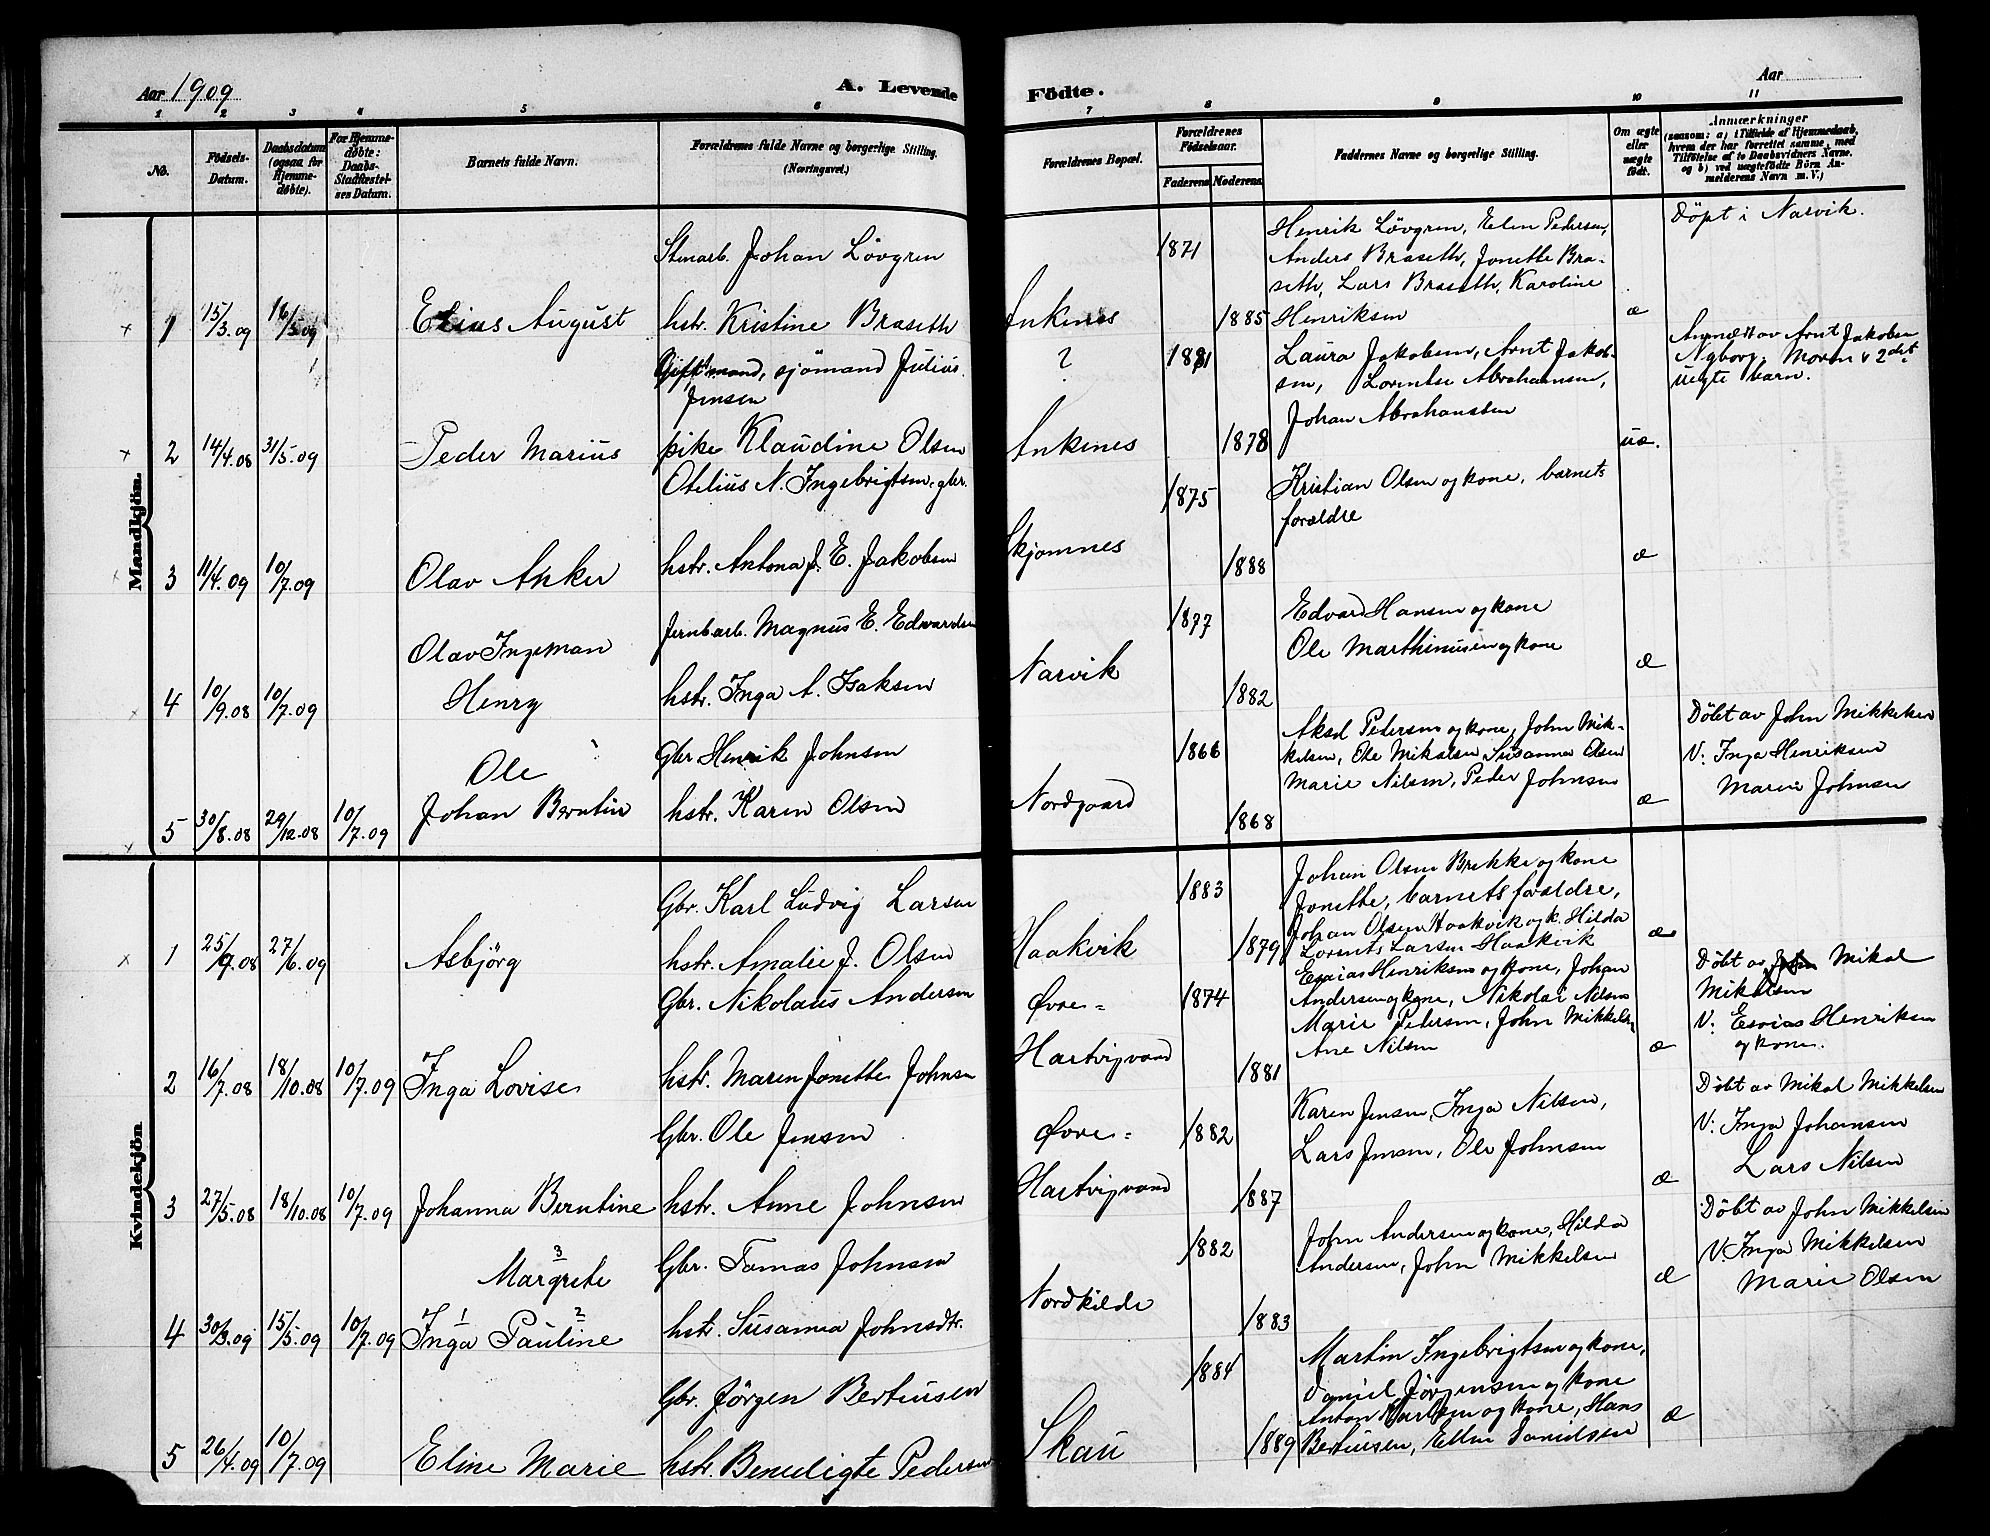 Aar 1909
A. Levende
Fødte.
Aar
1 2 3 4 5 6 7 8 9 10 11
No.
Fødsels-
Datum.
Daabsdatum
(ogsaa for
Hjemme-
døbte).
For Hjemme-
døbte:
Daabs-
Stadfæstel-
ses Datum.
Barnets fulde Navn.
Forældrenes fulde Navne og borgerlige Stilling.
(Næringsvei.)
Forældrenes Bopæl.
Forældrenes
Fødselsaar.
Faderens Moderens
Faddernes Navne og borgerlige Stilling.
Om ægte
eller
uægte
født.
Anmærkninger
(saasom: a) i Tilfælde af Hjemmedaab,
hvem der har forrettet samme, med
Tilføielse af to Daabsvidners Navne,
og b) ved uægtefødte Børn An-
melderens Navn m. V.)
Mandkjøn.
1 15/3.09 16/5.09
Elias August
Stenarb. Johan Lövgren
hstr. Kristine Braseth
Ankenes
1871
1885
Henrik Lövgren, Elen Pedersen,
Anders Braseth, Jonette Bra-
seth, Lars Braseth, Karoline
Henriksen
æ
Döpt i Narvik.
2 14/4.08 31/5.09
Peder Marius
Gift mand, sjömand Julius
Jensen
pike Klaudine Olsen
?
Ankenes
1881
1878
Laura Jakobsen, Arnt Jakob-
sen, Lorentse Abrahamsen,
Johan Abrahamsen
uæ.
Anmeldt av Arnt Jakobsen
Nyborg. Moren's 2det
uegte barn.
3 11/4.09 10/7.09
Olav Anker
Otelius N. Ingebrigtsen, gbr.
hstr. Antona J. E. Jakobsen
Skjomnes
1875
1888
Kristian Olsen og kone, barnets
forældre
æ
4 10/9.08 10/7.09
Olav Ingeman
Henry
Jernbarb. Magnus E. Edvardsen
hstr. Inga A. Isaksen
Narvik
1877
1882
Edvard Hansen og kone
Ole Marthinusen og kone
æ
5 30/8.08 29/12.08 10/7.09
Ole
Johan Berntin
Gbr Henrik Johnsen
hstr. Karen Olsen
Nordgaard
1866
1868
Aksel Pedersen og kone, John Mik-
kelsen, Ole Mikalsen, Susanna Olsen
Marie Nilsen, Peder Johnsen
æ
Döbt av John Mikkelsen
V: Inga Henriksen
Marie Johnsen
Kvindekjön
1 25/9.08 27/6.09
Asbjörg
Gbr. Karl Ludvig Larsen
hstr. Amalie J. Olsen
Haakvik
1883
1879
Johan Olsen Brekke og kone
Jonette, barnets forældre,
Johan Olsen Haakvik og k. Hilda
Lorents Larsen Haakvik
æ
2 16/7.08 18/10.08 10/7.09
Inga Lovise
Gbr. Nikolaus Andersen
hstr. Maren Jonette Johnsen
Øvre-
Hartvigvand
1874
1881
Esaias Henriksen og kone, Johan
Andersen og kone, Nikolai Nilsen
Marie Pedersen, John Mikkelsen
Ane Nilsen
æ
Döbt av Mikal
Mikalsen
V: Esaias Henriksen
og kone.
3 27/5.08 18/10.08 10/7.09
Johanna Berntine
Gbr. Ole Jensen
hstr. Anne Johnsen
Øvre-
Hartvigvand
1882
1887
Karen Jensen, Inga Nilsen,
Lars Jensen, Ole Johnsen
æ
Döbt av Mikal Mikkelsen
V: Inga Johansen
Lars Nilsen
4 30/3.09 15/5.09 10/7.09
3
Margrete
1 2
Inga Pauline
Gbr. Tomas Johnsen
hstr. Susanna Johnsdtr.
Nordkilde
1882
1883
John Andersen og kone, Hilda
Andersen, John Mikkelsen
æ
Döbt av John Mikkelsen
V. Inga Mikkelsen
Marie Olsen
5 26/4.09 10/7.09
Eline Marie
Gbr. Jörgen Bertiusen
hstr. Benedigte Pedersen
Skau
1884
1889
Martin Ingebrigtsen og kone,
Daniel Jörgensen og kone
Anton Karlsen og kone, Hans
Bertiusen, Ellen Danielsen
æ